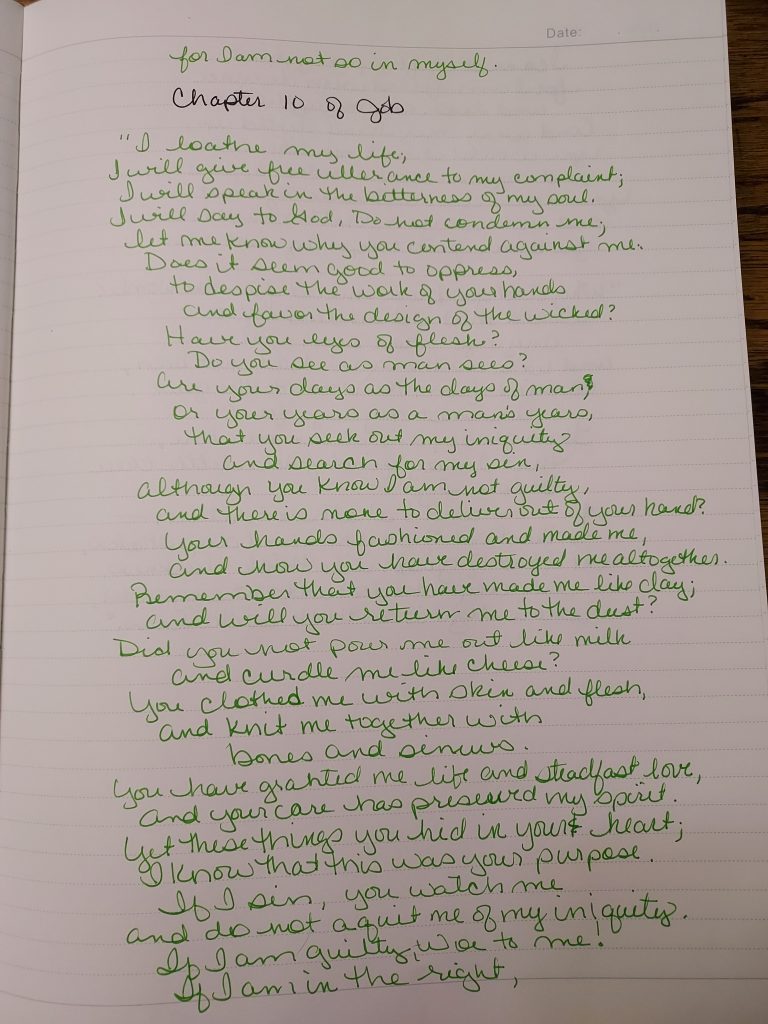 Date:
for I am not so in myself.
Chapter 10 of Job
"I loathe my life;
I will give free utterance to my complaint;
I will speak in the bitterness of my soul.
I will say to God, Do not condemn me;
let me know why you contend against me.
Does it seem good to oppress,
to despise the work of your hands
and favor the design of the wicked?
Have you eyes of flesh?
Do you see as man sees?
Are your days as the days of man,
or your years as a man's years,
that you seek out my iniquity
and search for my sin,
although you know I am not guilty,
and there is none to deliver out of your hand?
Your hands fashioned and made me,
and now you have destroyed me altogether.
Remember that you have made me like clay;
and will you return me to the dust?
Did you not pour me out like milk
and curdle me like cheese?
You clothed me with skin and flesh,
and knit me together with
bones and sinews.
You have granted me life and steadfast love,
and your care has preserved my spirit.
Yet these things you hid in your heart;
I know that this was your purpose.
If I sin, you watch me
and do not aquit me of my iniquity.
If I am guilty, woe to me!
If I am in the right,